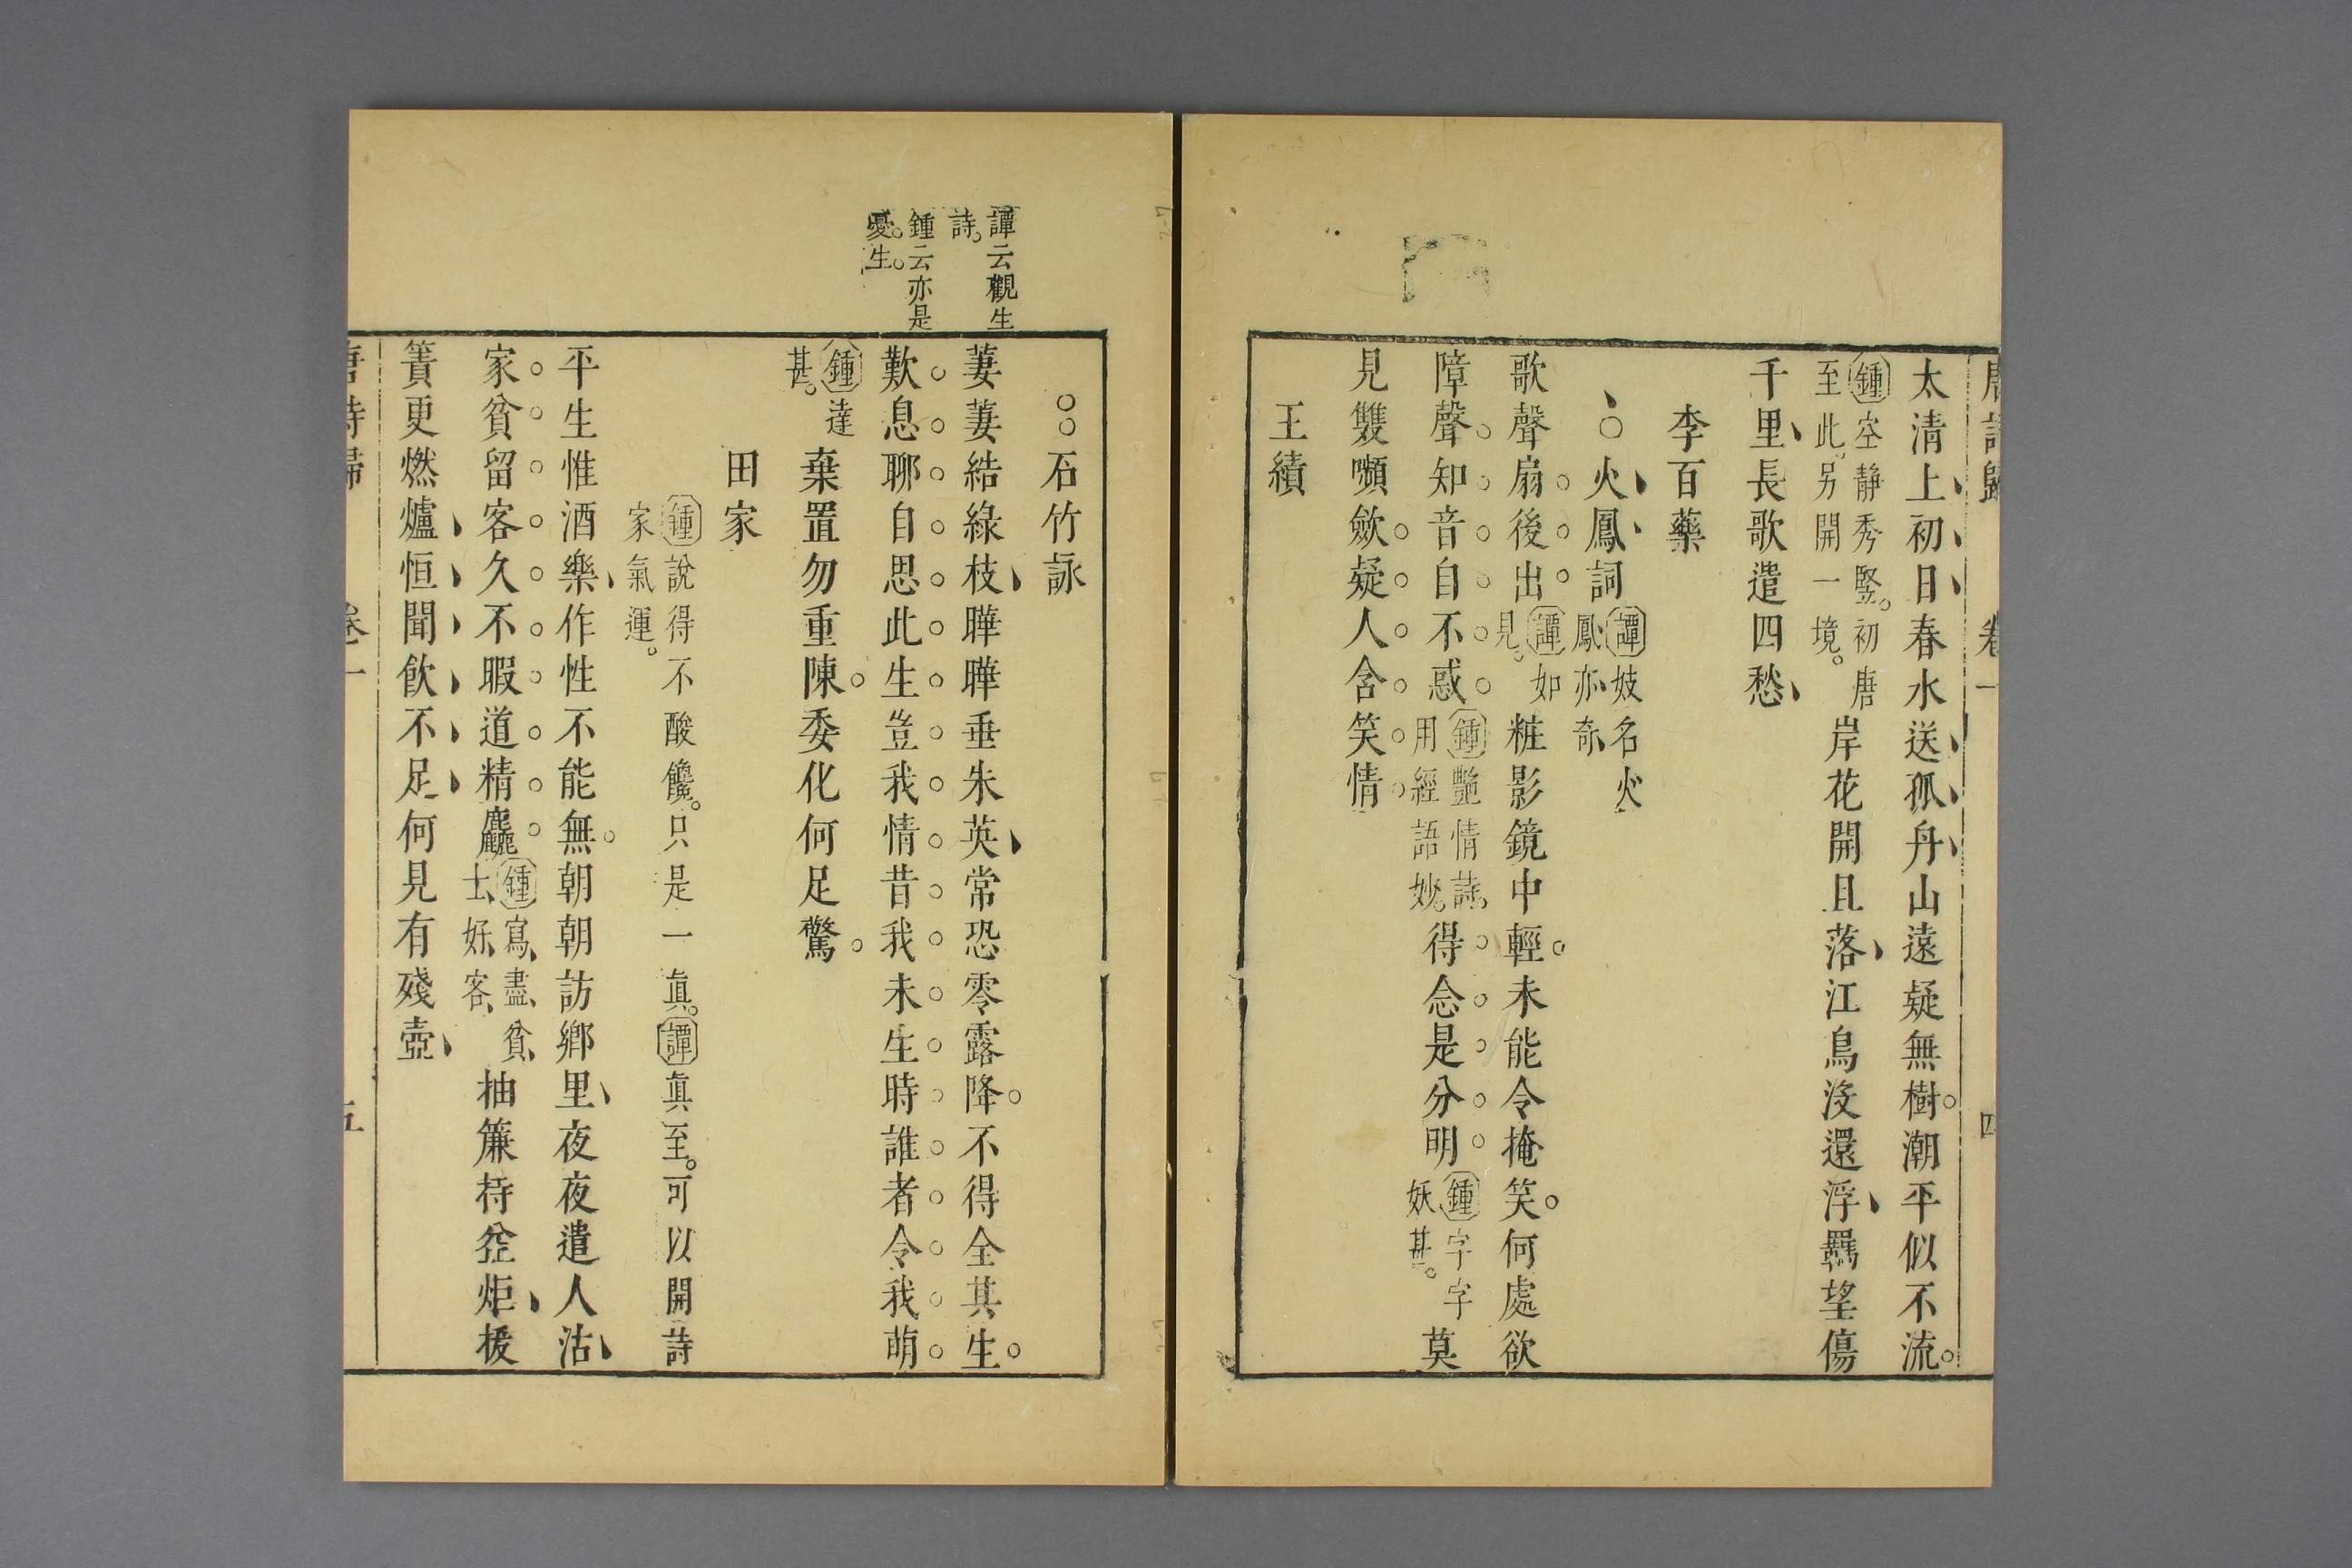 唐詩歸　卷一　四
太清上初日春水送孤舟山遠疑無樹潮平似不流
鍾空靜秀竪初唐
至此另開一境
岸花開且落江鳥没還浮羈望傷
千里長歌遣四愁
李百藥
火鳳詞
譚妓名火
鳳亦奇
歌聲扇後出
譚如
見
粧影鏡中輕未能令掩笑何處欲
障聲知音自不惑
鍾艷情詩
用經語妙
得念是分明
鍾字字
妖甚
莫
見雙嚬歛疑人含笑情
王績
譚云觀生
詩
鍾云亦是
憂生
石竹詠
萋萋結綠枝曄曄垂朱英常恐零露降不得全其生
歎息聊自思此生豈我情昔我未生時誰者令我萌
鍾達
甚
棄置勿重陳委化何足驚
田家
鍾說得不酸饞只是一眞譚眞至可以開詩
家氣運
平生惟酒樂作性不能無朝朝訪鄉里夜夜遣人沽
家貧留客久不暇道精麤
鍾寫盡貧
士好客
抽簾持益炬援
簀更燃爐恒聞飲不足何見有殘壺
唐詩歸　卷一　五